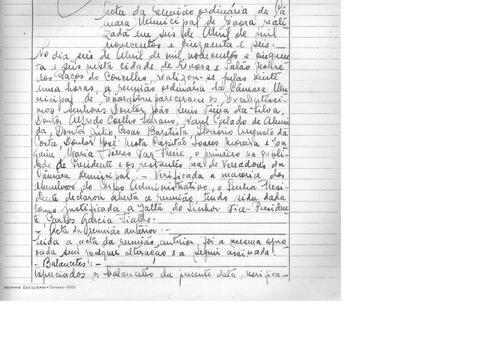 Acta da reunião ordinária da Câ-
mara Municipal de Évora reali-
zada em seis de Abril de mil
novecentos e cinquenta e seis:
No dia seis de Abril de mil novecentos e cinquen-
ta e seis nesta cidade de Évora e Salão Nobre
dos Paços do Concelho, realizou-se pelas vinte
uma horas, a reunião ordinária da Câmara Mu-
nicipal de Évora. Compareceram os Excelentíssi-
mos Senhores Doutor João Luís Vieira da Silva,
Doutor Alfredo Coelho Serrano, Raul Calado de Almei-
da, Doutor Júlio Cesar Baptista, Honório Augusto da
Costa, Doutor José Mota Capitão Soares Moreira e Joa-
quim Maria Torres Vaz Freire, o primeiro na quali-
dade de Presidente e os restantes na de Vereadores da
Câmara Municipal. - Verificada a maioria dos
Membros do Corpo Administrativo, o Senhor Presi-
dente declarou aberta a reunião, tendo sido dada
como justificada a falta do Senhor Vice-Presiden-
te Carlos Garcia Fialho.
- Acta da reunião anterior: -
Lida a acta da reunião anterior, foi a mesma apro-
vada sem qualquer alteração e a seguir assinada
- Balancetes: -
Apreciados os balancetes da presente data, verifica-